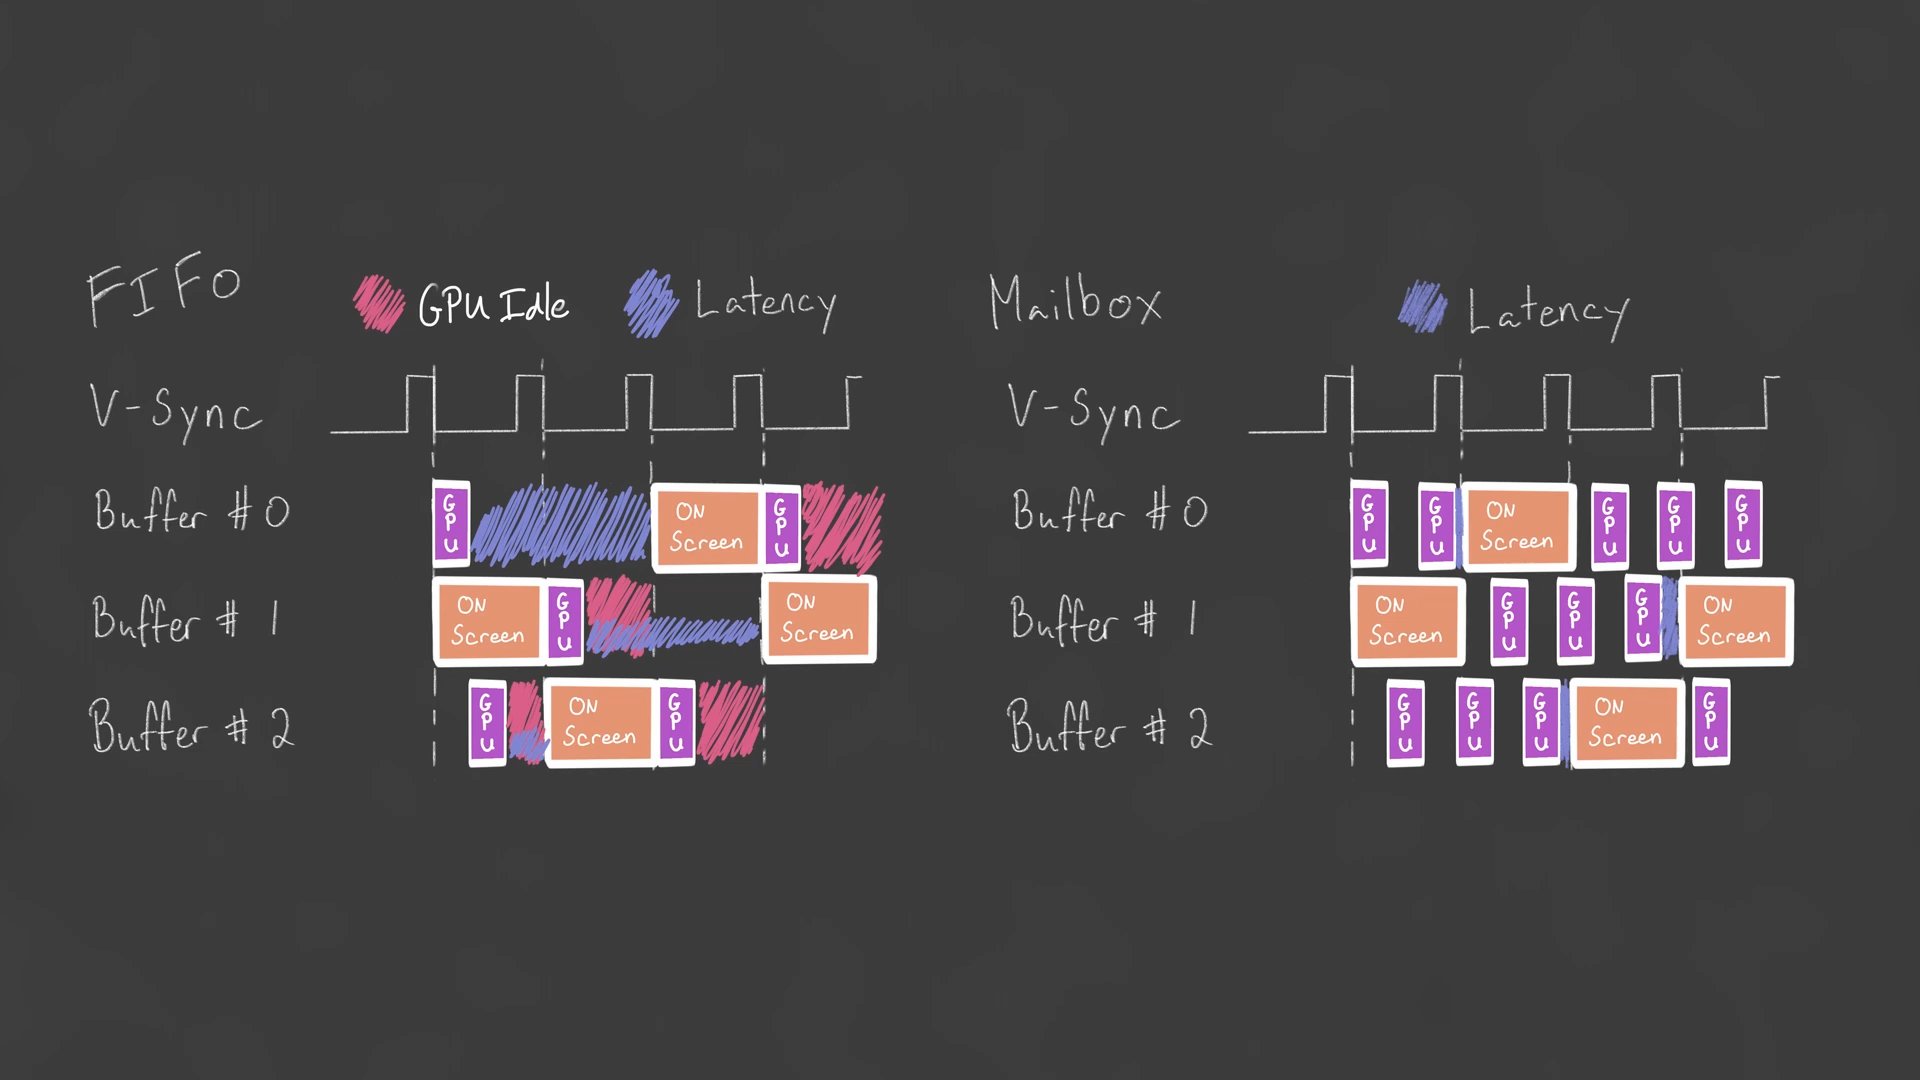 FIFO
GPU Idle
Latency
V-Sync
Buffer #0
GPU
ON
Screen
GPU
Buffer # 1
ON
Screen
GPU
ON
Screen
Buffer # 2
GPU
ON
Screen
GPU
Mailbox
Latency
V-Sync
Buffer #0
GPU
GPU
ON
Screen
GPU
GPU
GPU
Buffer # 1
ON
Screen
GPU
GPU
GPU
ON
Screen
Buffer # 2
GPU
GPU
GPU
ON
Screen
GPU